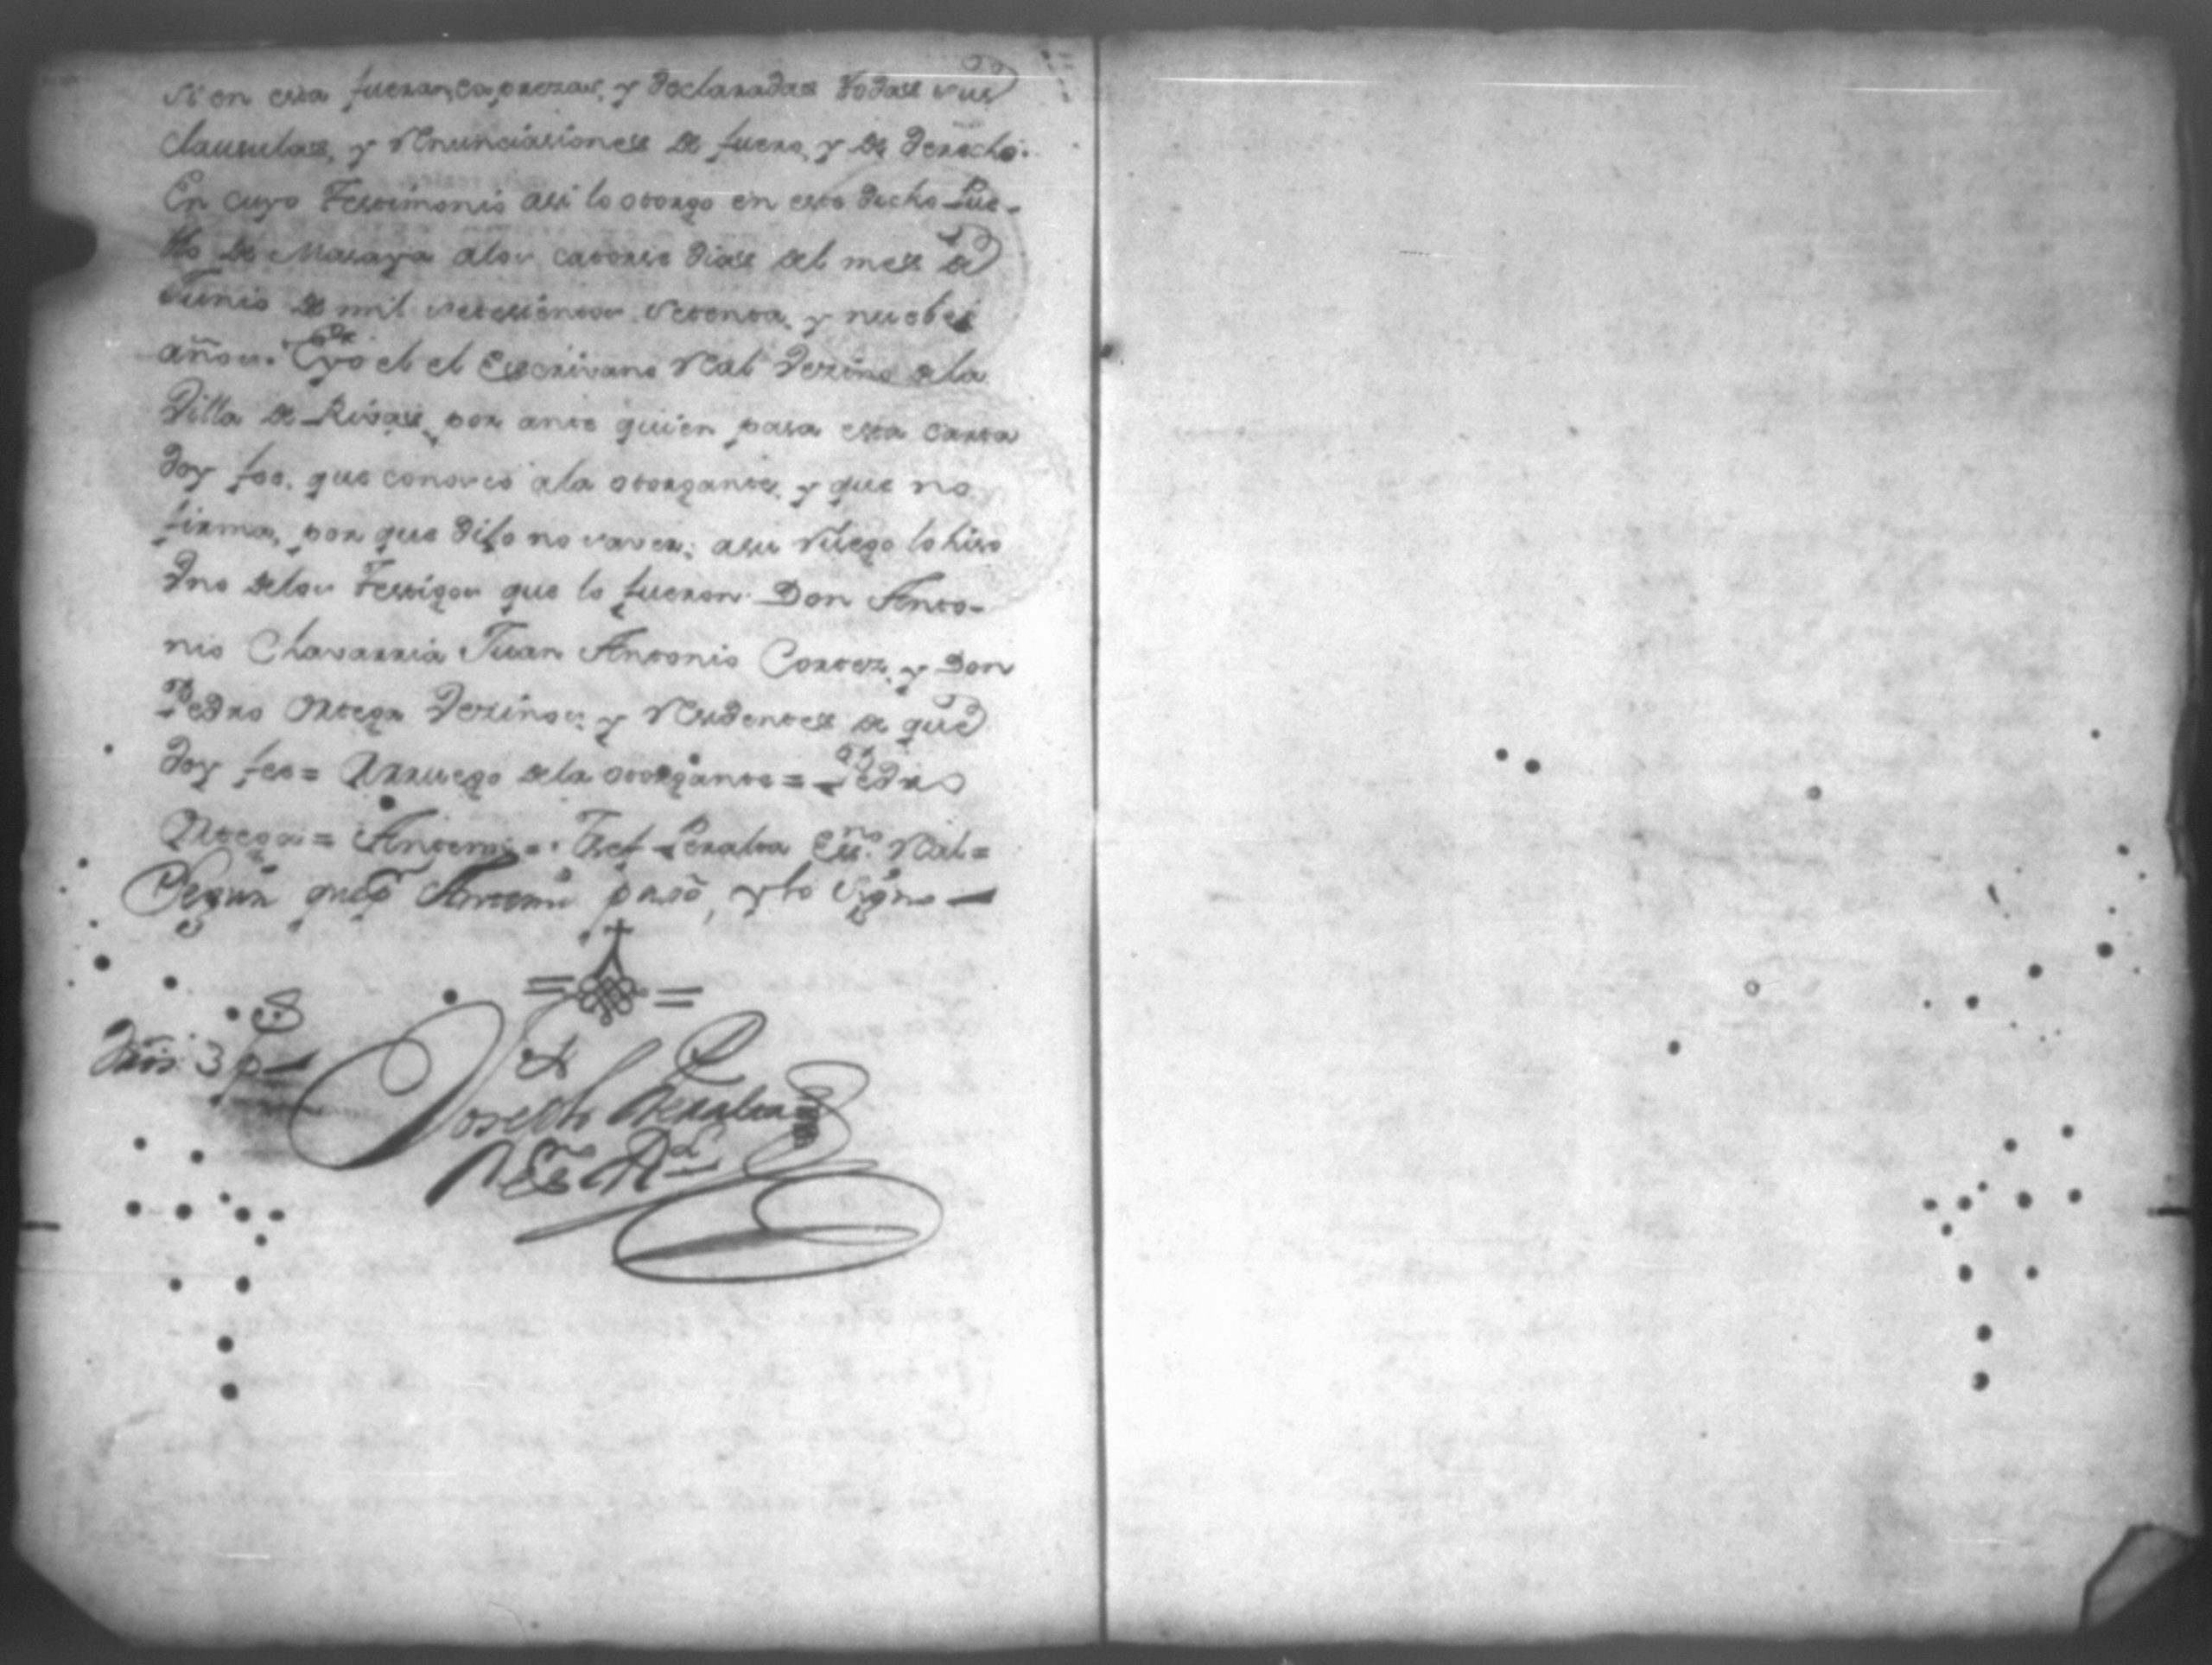 si en esta fueran expresas, y declaradas todas sus
Clausulas, y renunciasiones de fuero, y de derecho.
En cuyo Testimonio asi lo otorgo en este dicho Pue-
blo de Masaya alos catorse dias del mes de
Junio de mil setesientos setenta, y nuebe
años. Eyo el el Escrivano Real Vezino dela
Villa de Rivas, por ante quien pasa esta Carta
doy fee, que conosco ala otorgante, y que no
firma, por que dijo no saver; asu ruego lo hiso
Vno delos Testigos que lo fueron Don Anto-
nio Chavarria Juan Antonio Cortez, y Don
Pedro Ortega Vezinos, y residentes de que
doy fee = Arruego dela otorgante = Pedro
Ortega = Antemi = Josef Peralta Esno. Real =
Segun que Antemi pasó, y lo signo —
Joseph Peralta
Esno Rl
3 p